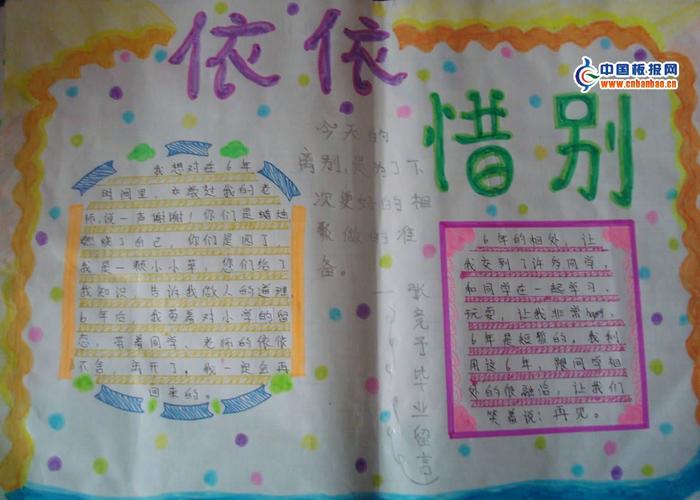 依依
惜别
中国板报网
www.cnbanbao.cn
今天的
离别,是为了下
次更好的相
聚做的准
备。
—张竞予毕业留言
我想对在6年
时间里,立教过我的老
师,说一声谢谢!你们是蜡烛
燃烧了自己,你们是园丁
我是一颗小小草,您们给了
我知识,告诉我做人的道理
6年后,我带着对小学的留
恋,带着同学、老师的依依
不舍,离开了。我一定会再
回来的。
6年的相处,让
我交到了许多同学,
和同学在一起学习、
玩耍,让我非常happy,
6年是短暂的,我利
用这6年,跟同学相
处的很融洽,让我们
笑着说:再见。